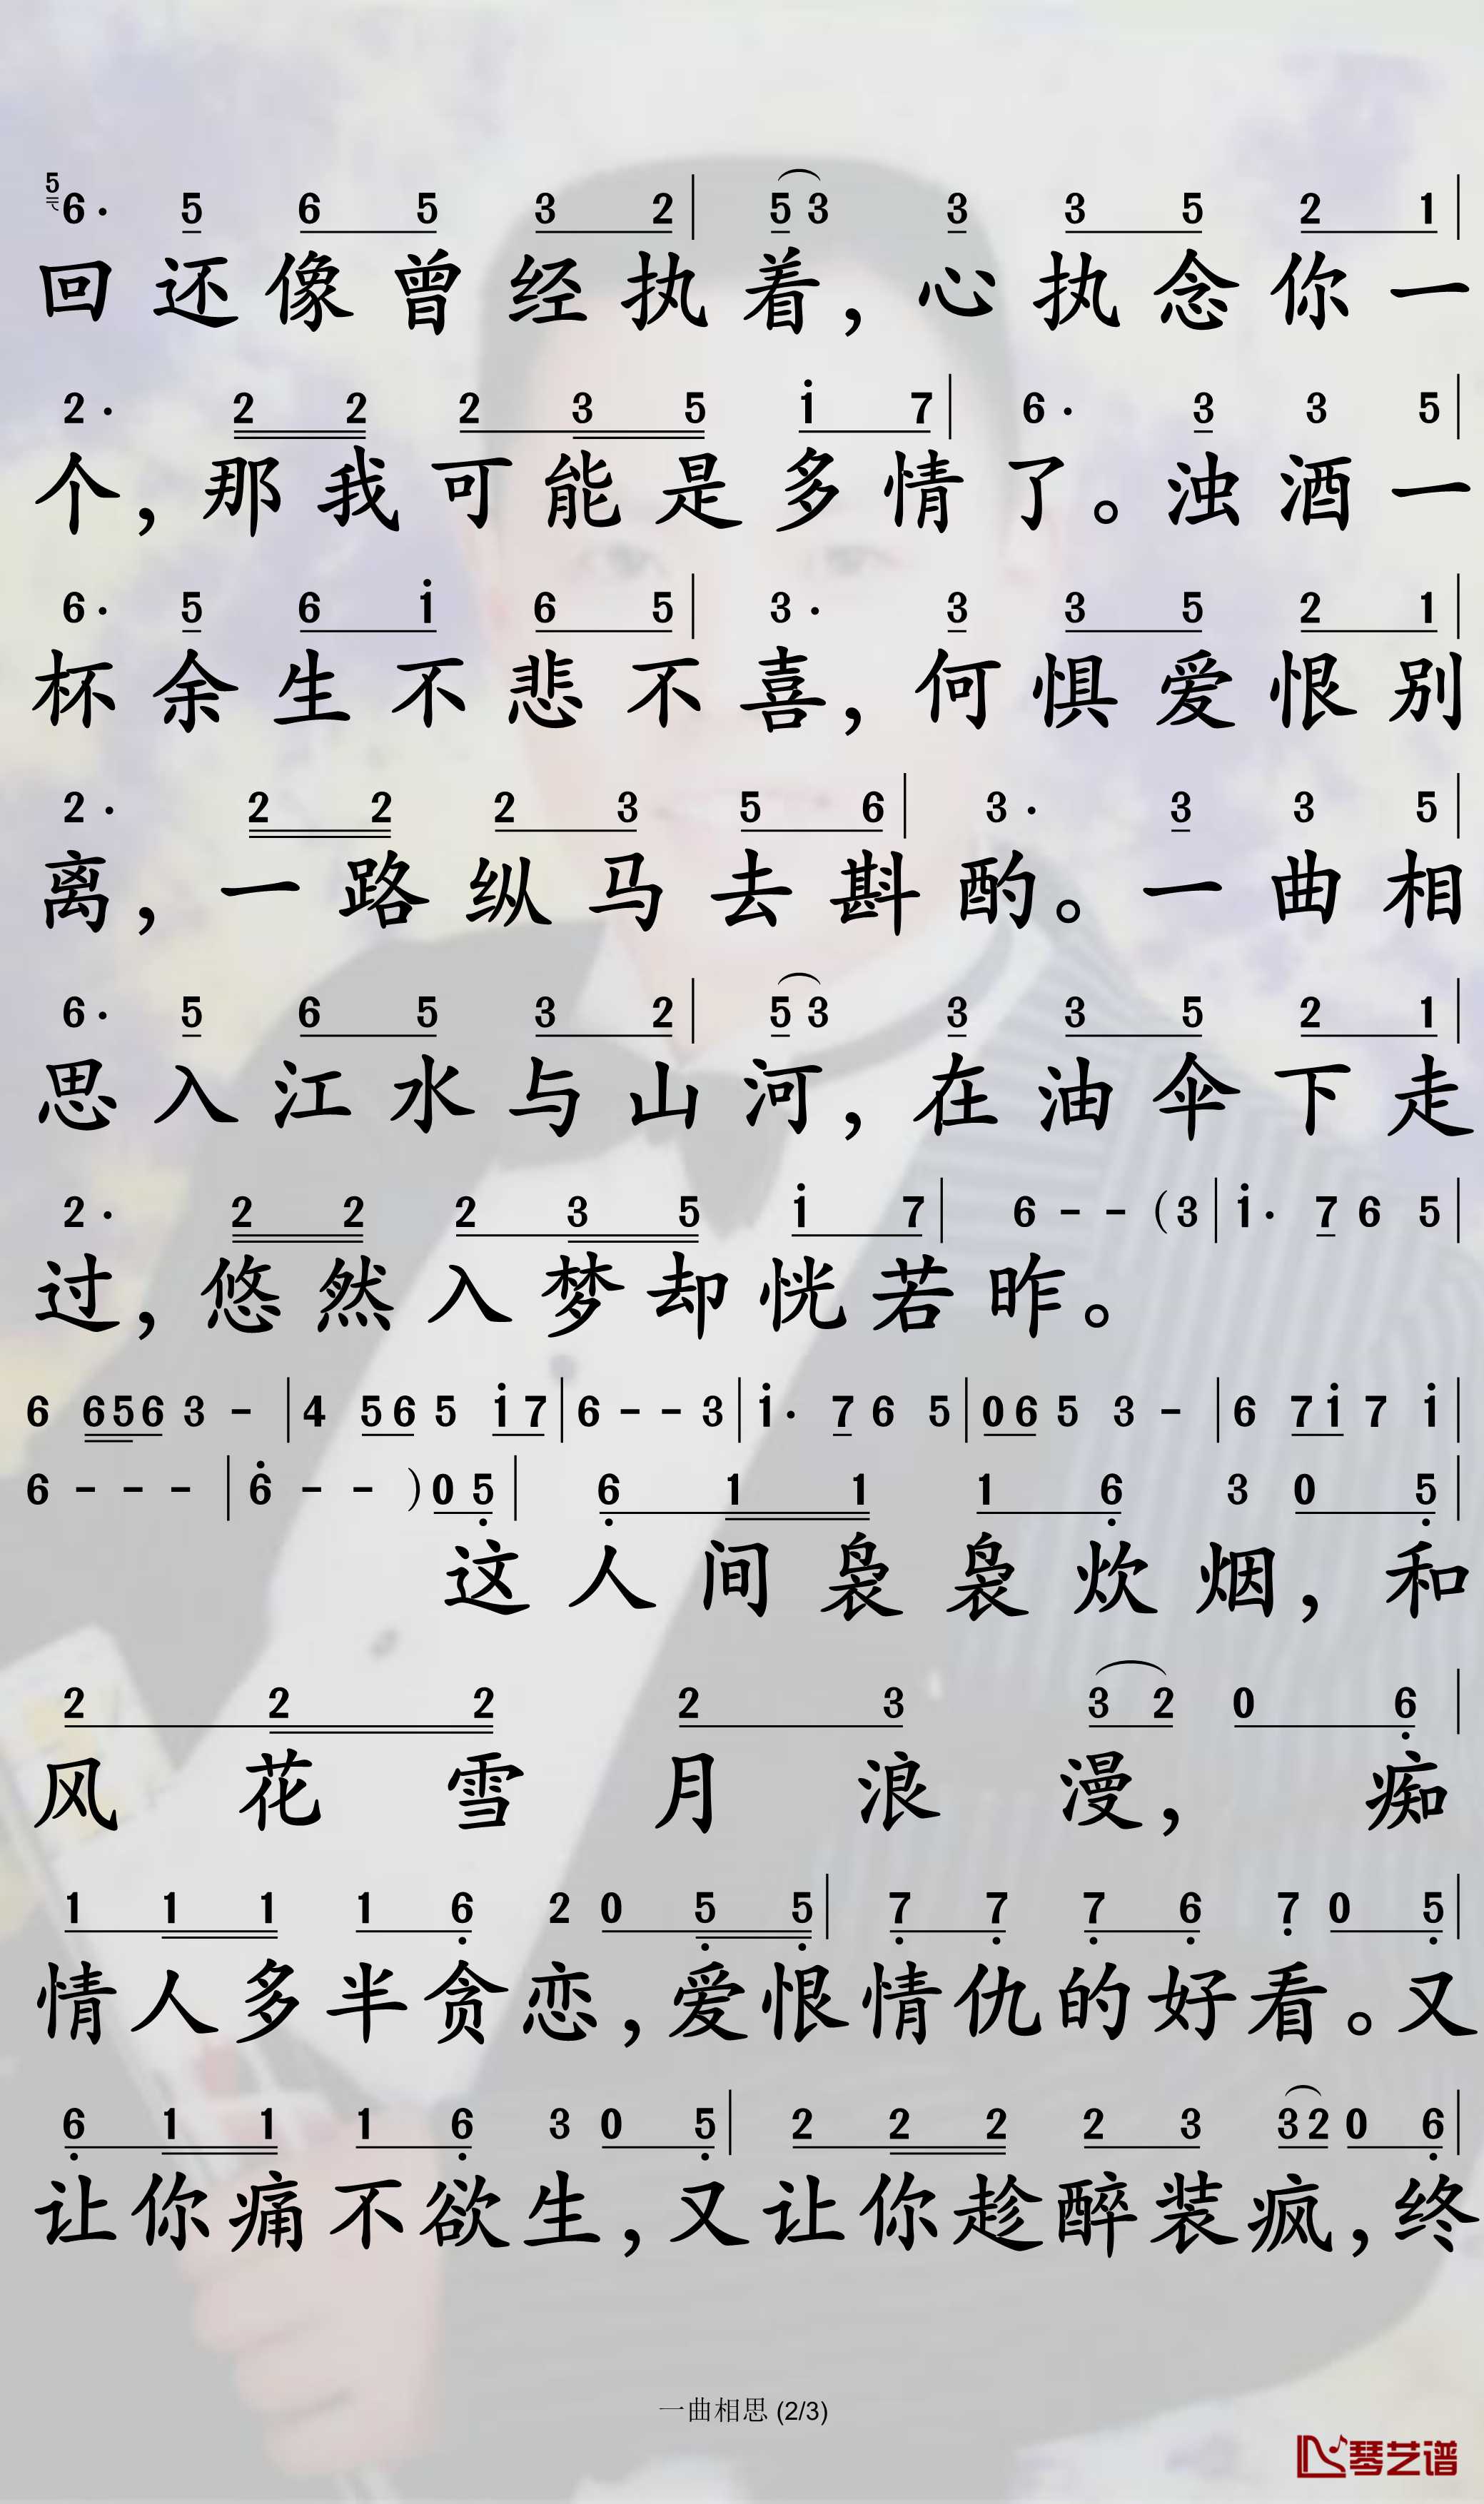 5
6· 5 6 5 3 2 | 5 3 3 3 5 2 1 |
回还像曾经执着，心执念你一
2· 2 2 2 3 5 i 7 | 6· 3 3 5 |
个，那我可能是多情了。浊酒一
6· 5 6 i 6 5 | 3· 3 3 5 2 1 |
杯余生不悲不喜，何惧爱恨别
2· 2 2 2 3 5 6 | 3· 3 3 5 |
离，一路纵马去斟酌。一曲相
6· 5 6 5 3 2 | 5 3 3 3 5 2 1 |
思入江水与山河，在油伞下走
2· 2 2 2 3 5 i 7 | 6 - - (3 | i· 7 6 5 |
过，悠然入梦却恍若昨。
6 6 5 6 3 - | 4 5 6 5 i 7 | 6 - - 3 | i· 7 6 5 | 0 6 5 3 - | 6 7 i 7 i |
6 - - - | 6̇ - - ) 0 5̣ | 6̣ 1 1 1 6̣ 3 0 5̣ |
这人间袅袅炊烟，和
2 2 2 2 3 3 2 0 6̣ |
风花雪月浪漫，痴
1 1 1 1 6̣ 2 0 5̣ 5̣ | 7̣ 7̣ 7̣ 6̣ 7̣ 0 5̣ |
情人多半贪恋，爱恨情仇的好看。又
6̣ 1 1 1 6̣ 3 0 5̣ | 2 2 2 2 3 3 2 0 6̣ |
让你痛不欲生，又让你趁醉装疯，终
一曲相思 (2/3)
琴艺谱